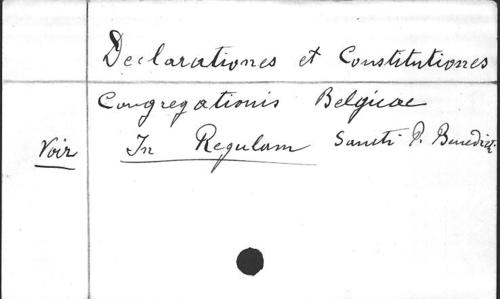 Declarationes et Constitutiones
Congregationis Belgicae
Voir In Regulam Sancti P. Benedicti